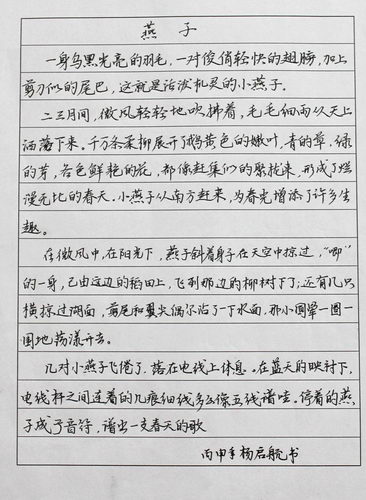 燕子
一身乌黑光亮的羽毛,一对俊俏轻快的翅膀,加上
剪刀似的尾巴,这就是活泼机灵的小燕子。
二三月间,微风轻轻地吹拂着,毛毛细雨从天上
洒落下来。千万条柔柳展开了鹅黄色的嫩叶,青的草,绿
的芽,各色鲜艳的花,都像赶集似的聚拢来,形成了烂
漫无比的春天。小燕子从南方赶来,为春光增添了许多生
趣。
在微风中,在阳光下,燕子斜着身子在天空中掠过,“唧”
的一身,已由这边的稻田上,飞到那边的柳树下了;还有几只
横掠过湖面,剪尾和翼尖偶尔沾了一下水面,那小圆晕一圈一
圈地荡漾开去。
几对小燕子飞倦了,落在电线上休息。在蓝天的映衬下,
电线杆之间连着的几痕细线多么像五线谱哇。停着的燕
子成了音符,谱出一支春天的歌
丙申年杨启航书